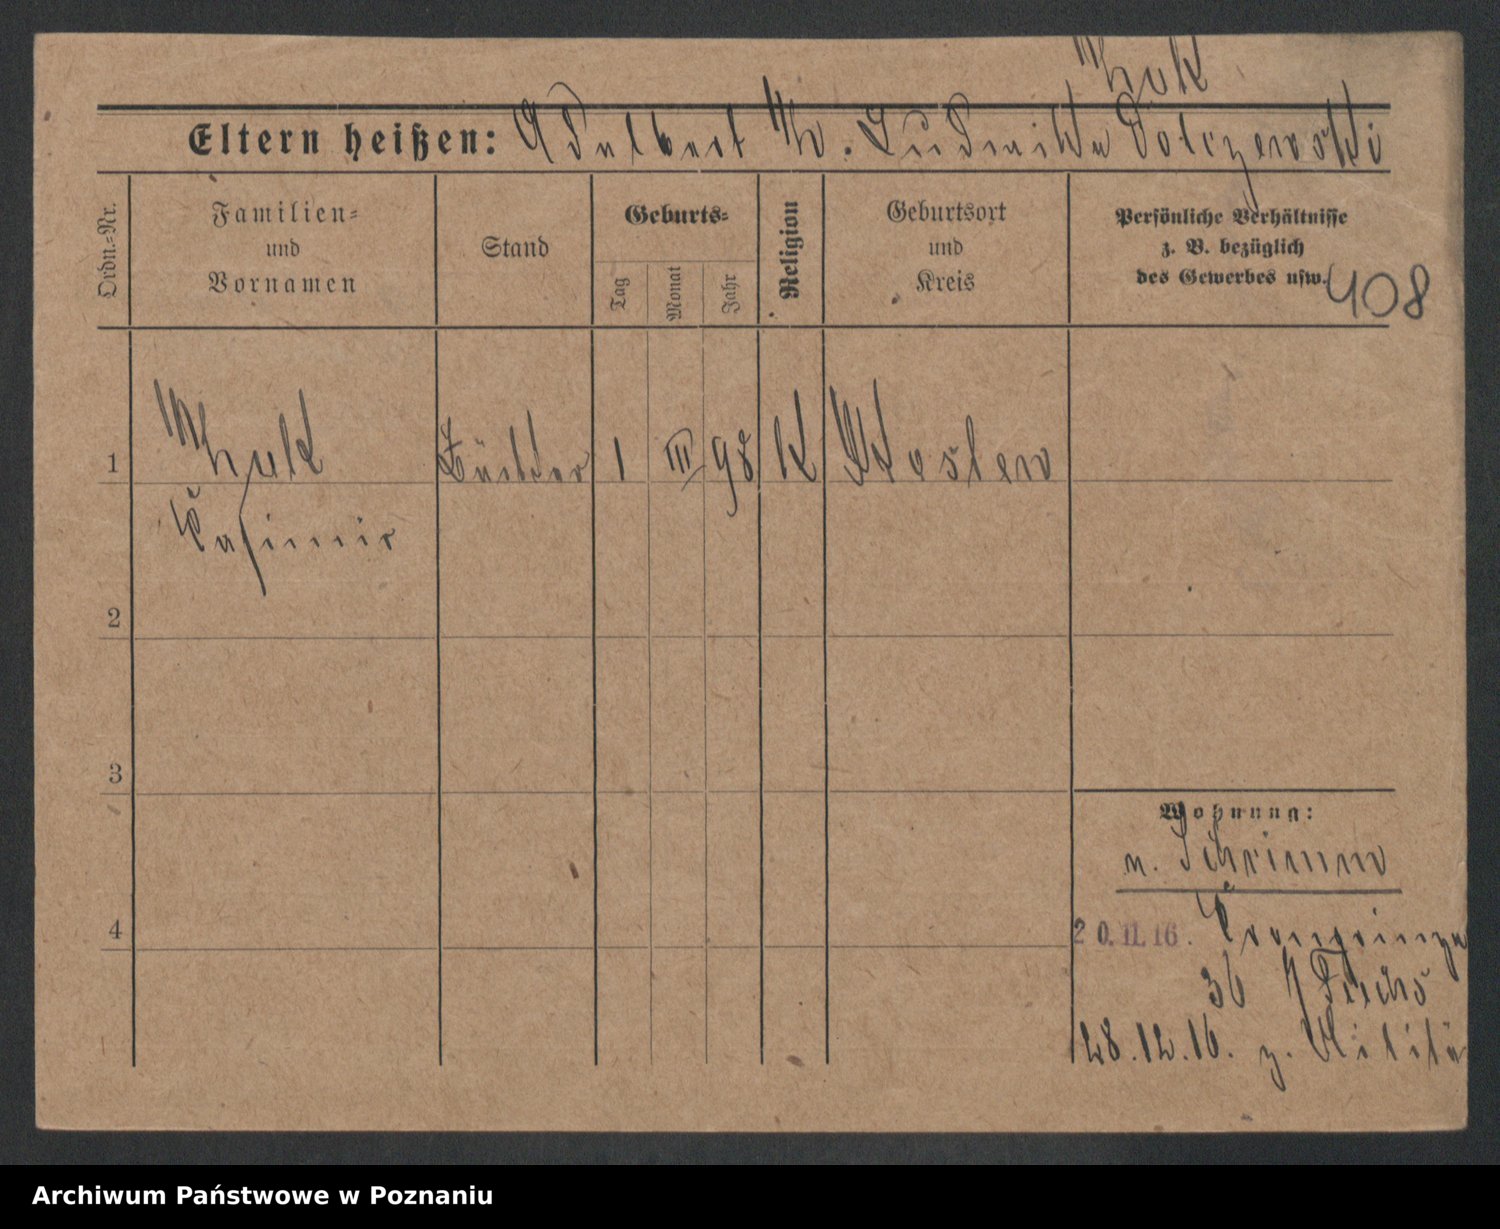 Eltern heißen: Adalbert u. Ludwika
408
Ordn.-Nr.
Familien-
und
Vornamen
Stand
Geburts-
Tag
Monat
Jahr
Religion
Geburtsort
und
Kreis
Persönliche Verhältnisse
z. B. bezüglich
des Gewerbes usw.
1 1 III 98 K Kosten
Casimir
2
3
4
Wohnung:
n. Schrimm
20.11.16. Kronprinzen
36
28.12.16. z. Militär
Archiwum Państwowe w Poznaniu